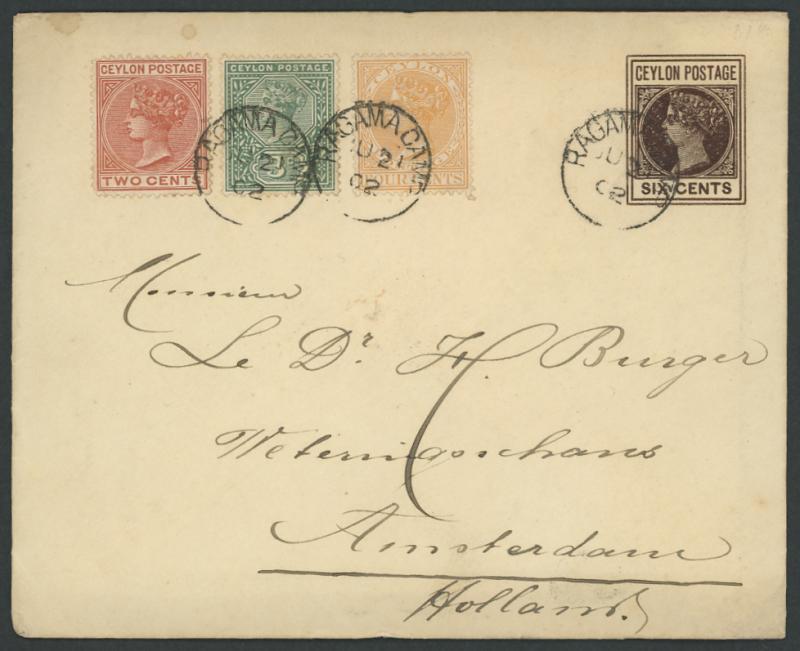 CEYLON POSTAGE
TWO CENTS
CEYLON POSTAGE
CEYLON
FOUR CENTS
CEYLON POSTAGE
SIX CENTS
RAGAMA CAMP
JU 21
02
RAGAMA CAMP
JU 21
02
RAGAMA
JU 21
02
Monsieur
Le Dr. H. Burger
Weteringschans
Amsterdam
Holland.